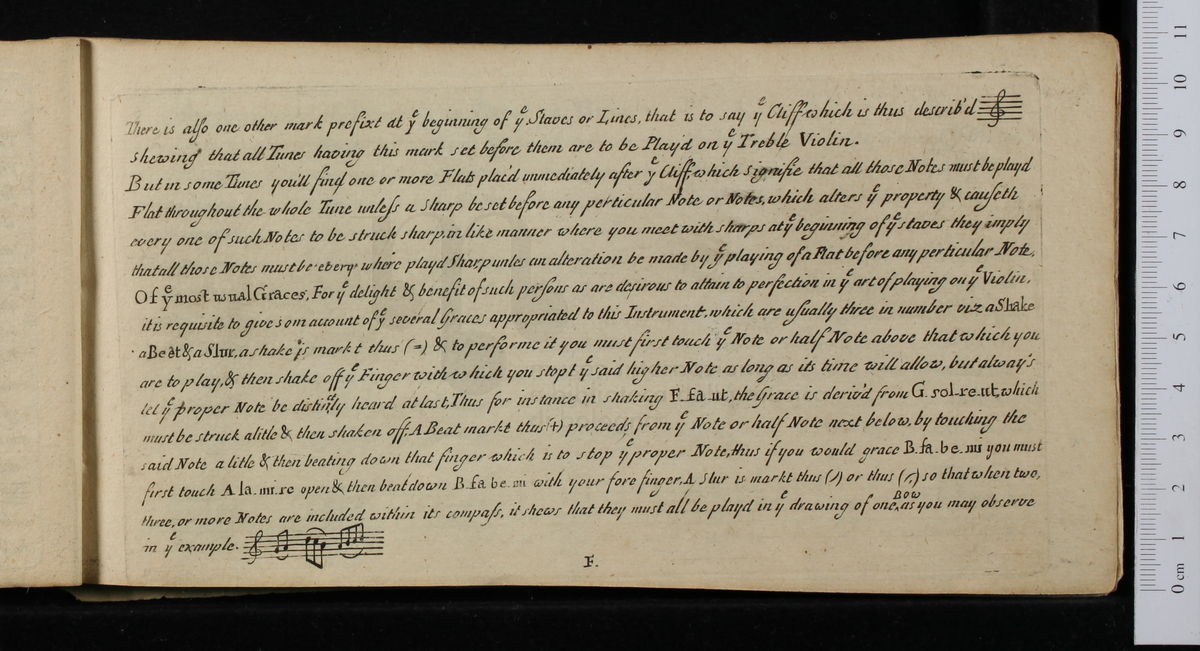 There is also one other mark prefixt at yͤ beginning of yͤ Staves or Lines, that is to say yͤ Cliff which is thus describ'd
shewing that all Tunes having this mark set before them are to be Play'd on yͤ Treble Violin.
But in some Tunes you'll find one or more Flats plac'd immediately after yͤ Cliff, which signifie that all those Notes must be playd
Flat throughout the whole Tune unless a Sharp be set before any perticular Note or Notes, which alters yͤ property & causeth
every one of such Notes to be struck sharp, in like manner where you meet with sharps at yͤ beginning of yͤ staves they imply
that all those Notes must be every where playd Sharp unles an alteration be made by yͤ playing of a Flat before any perticular Note,
Of yͤ most usual Graces, For yͤ delight & benefit of such persons as are desirous to attain to perfection in yͤ art of playing on yͤ Violin,
it is requisite to give som account of yͤ several Graces appropriated to this Instrument, which are usually three in number viz a Shake
a Beat & a Slur, a shake is markt thus (=) & to performe it you must first touch yͤ Note or half Note above that which you
are to play, & then shake off yͤ Finger with which you stopt yͤ said higher Note as long as its time will allow, but alway's
let yͤ proper Note be distinctly heard at last, Thus for instance in shaking F-fa-ut, the Grace is deriv'd from G. sol-re-ut, which
must be struck alitle & then shaken off. A Beat markt thus (+) proceeds from yͤ Note or half Note next below, by touching the
said Note a litle & then beating down that finger which is to stop yͤ proper Note, thus if you would grace B-fa-be-mi you must
first touch A la-mi-re open & then beat down B-fa-be-mi with your fore finger. A Slur is markt thus (⁄) or thus (⌢) so that when two,
three, or more Notes are included within its compass, it shews that they must all be playd in yͤ drawing of one Bow, as you may observe
in yͤ example.
F.
0 cm 1 2 3 4 5 6 7 8 9 10 11